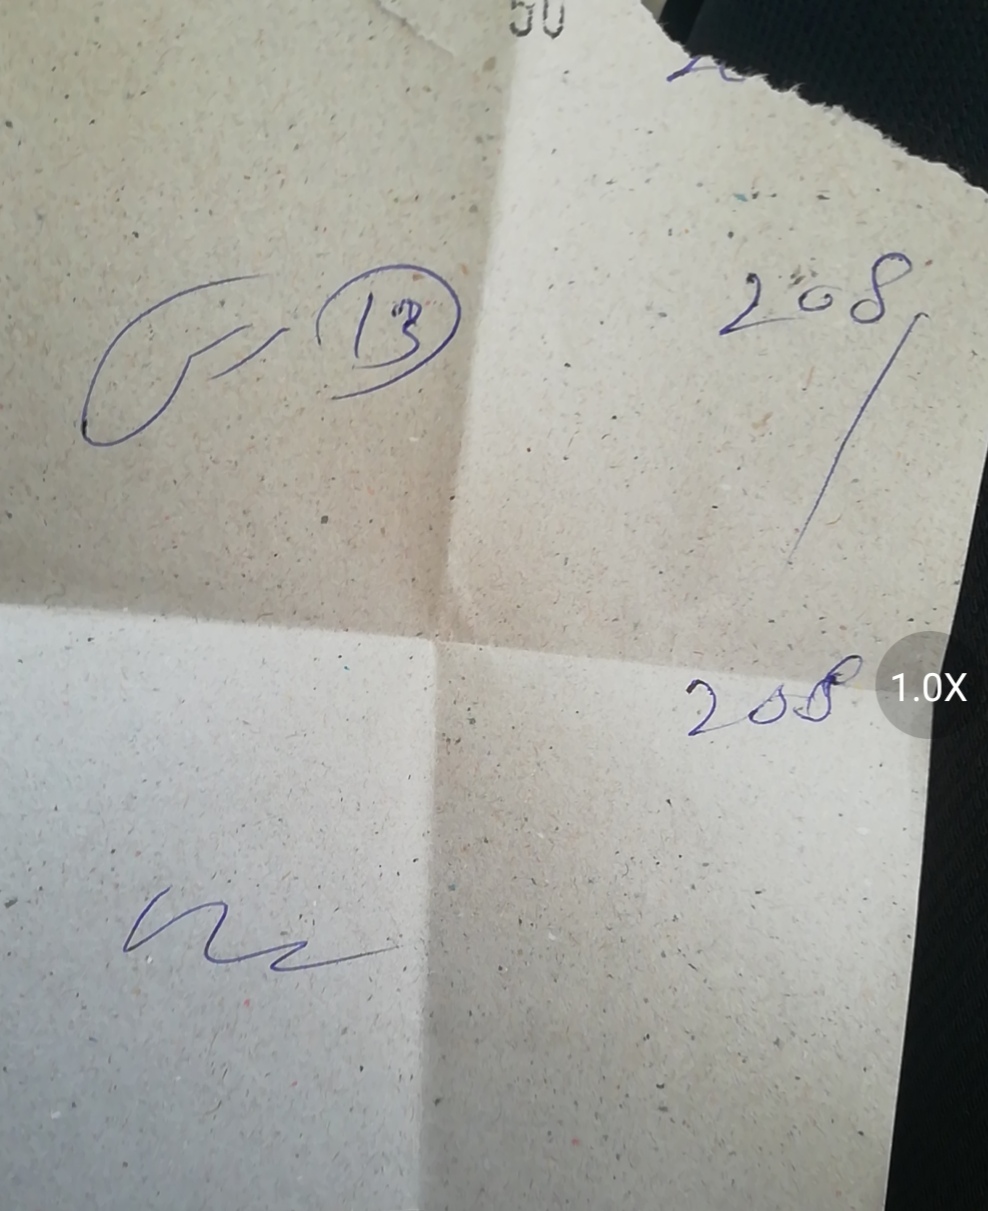 50
13
208
208
1.0X